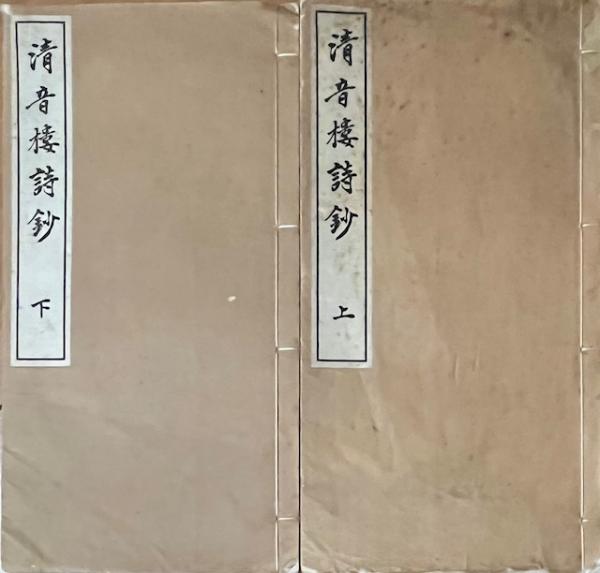 清音楼詩鈔 上
清音楼詩鈔 下